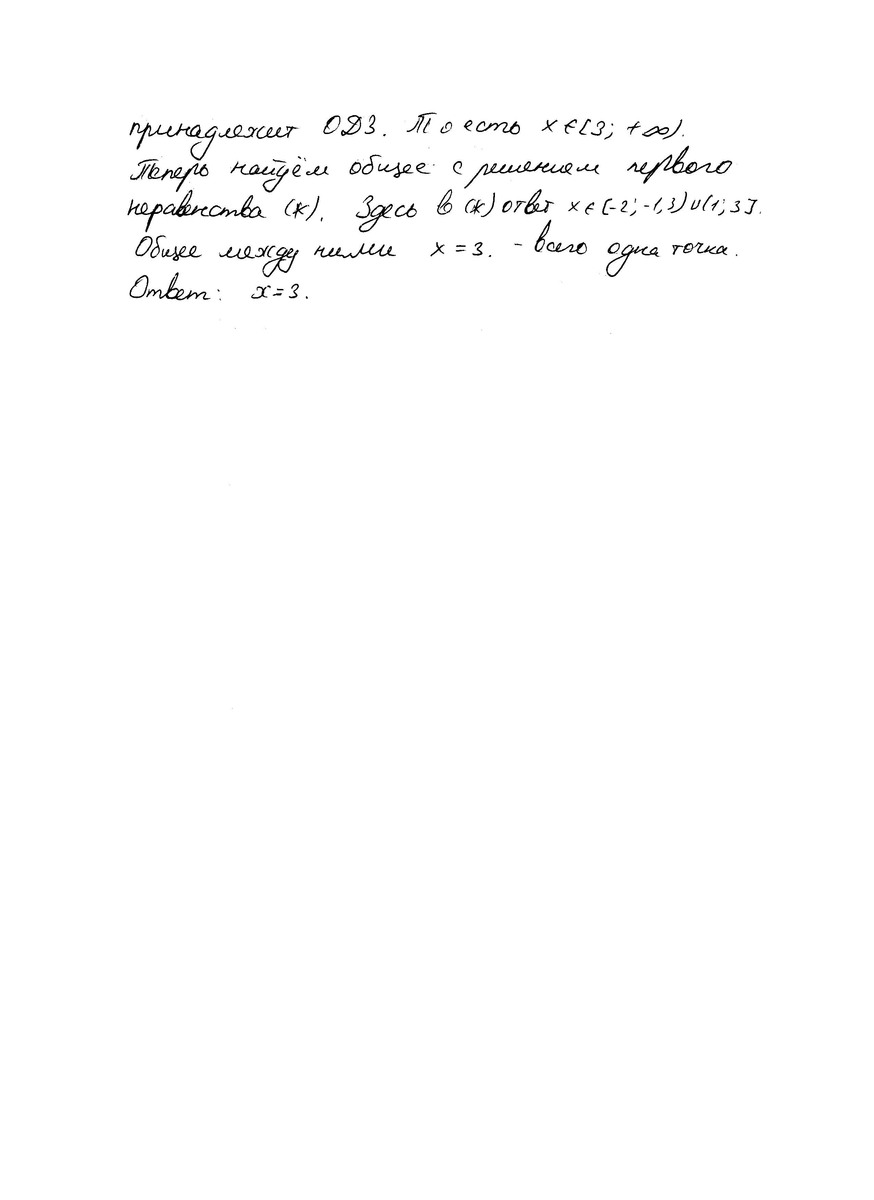 принадлежит ОДЗ. То есть x∈[3; +∞).
Теперь найдём общее с решением первого
неравенства (ж). Здесь в (ж) ответ x∈[-2; -1,3)∪(1; 3].
Общее между ними x = 3. - всего одна точка.
Ответ: x=3.